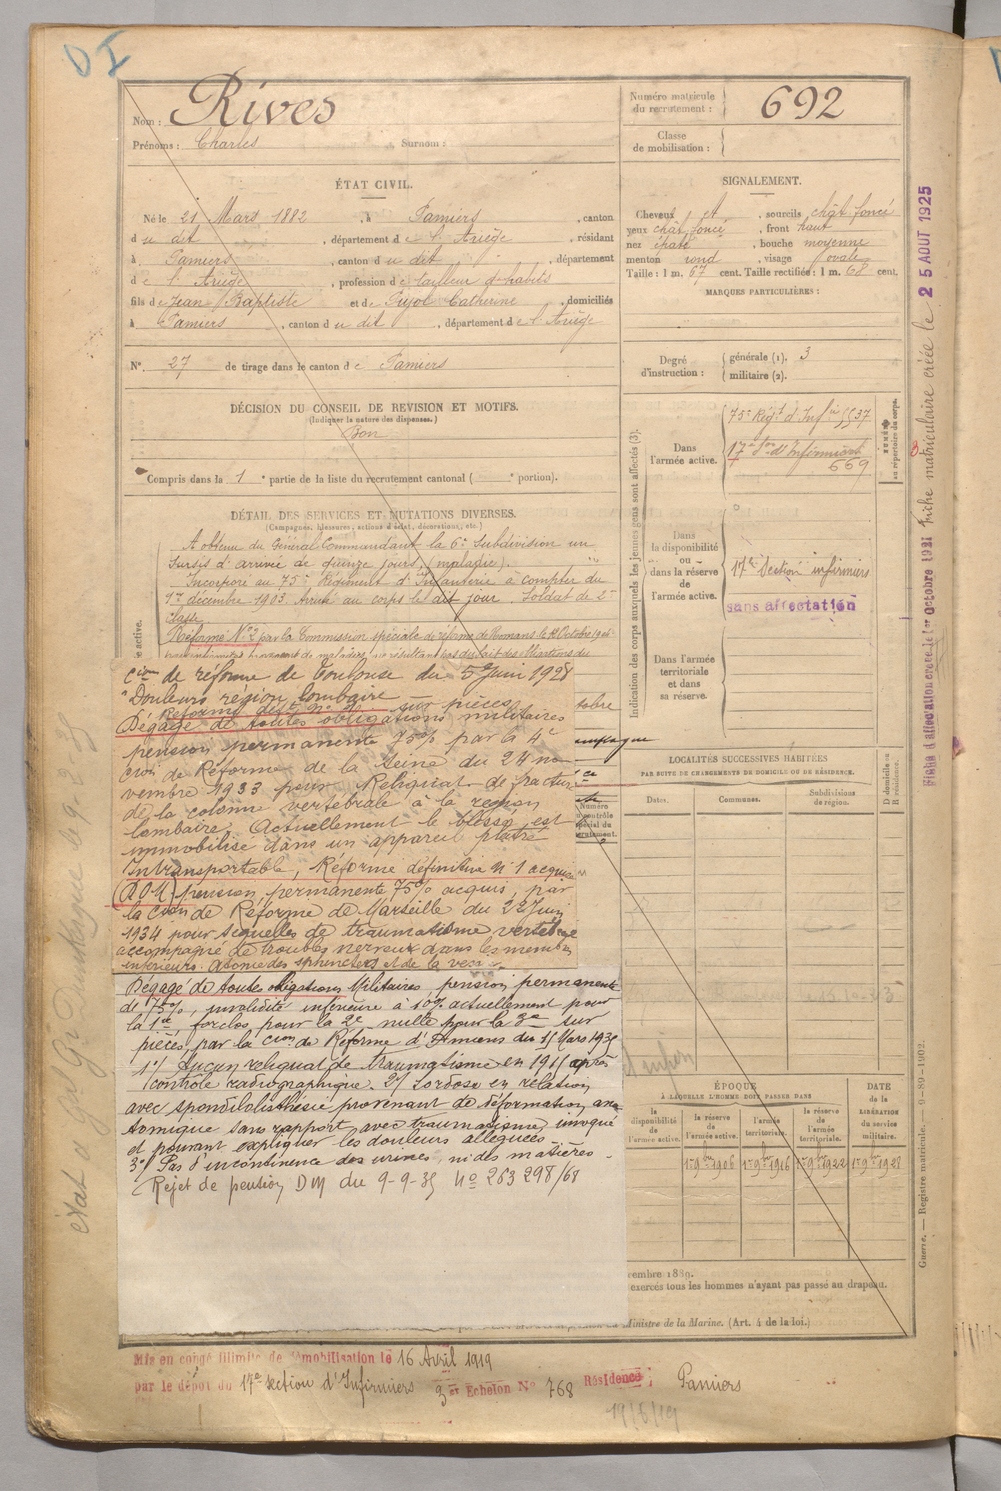 Nom : Rives
Prénoms : Charles Surnom :
Numéro matricule du recrutement : 692
Classe de mobilisation :
ÉTAT CIVIL.
Né le 21 Mars 1882, à Pamiers, canton
du dit, département de l'Ariège, résidant
à Pamiers, canton du dit, département
de l'Ariège, profession de tailleur d'habits
fils de Jean Baptiste et de Pujol Catherine, domiciliés
à Pamiers, canton du dit, département de l'Ariège
N° 27 de tirage dans le canton de Pamiers
DÉCISION DU CONSEIL DE REVISION ET MOTIFS.
(Indiquer la nature des dispenses.)
Bon
Compris dans la 1e partie de la liste du recrutement cantonal ( e portion).
DÉTAIL DES SERVICES ET MUTATIONS DIVERSES.
(Campagnes, blessures, actions d'éclat, décorations, etc.)
A obtenu du Général Commandant la 6e Subdivision un
sursis d'arrivée de quinze jours (maladie).
Incorporé au 75e Régiment d'Infanterie à compter du
1er décembre 1903. Arrivé au corps le dit jour. Soldat de 2e
classe.
Réformé N° 2 par la Commission spéciale de réforme de Romans le
cion de réforme de Toulouse du 5 Juin 1928
"Douleurs région lombaire
Réforme déf. n° 1 sur pièces
Dégagé de toutes obligations militaires
pension permanente 75% par la 4e
cion de Réforme de la Seine du 24 no
vembre 1933 pour Reliquat de fractur
de la colonne vertébrale à la region
lombaire, Actuellement le blessé est
immobilisé dans un appareil platré
Intransportable, Réforme définitive n° 1 acquise
(DOM) pension permanente 75% acquis, par
la cion de Réforme de Marseille du 22 Juin
1934 pour séquelles de traumatisme vertébral
accompagné de troubles nerveux dans les membres
inférieurs. Atonie des sphincters et de la vessie.
Dégagé de toutes obligations Militaires, pension permanente
de 75%, invalidité inférieure à 10% actuellement pour
la 1re, forclos pour la 2e nulle pour la 3e sur
pièces, par la cion de Réforme d'Amiens du 15 Mars 1935
1°/ Aucun reliquat de traumatisme en 1915 après
contrôle radiographique. 2°/ Lordose en relation
avec spondilolisthésie provenant de déformation ana
tomique sans rapport avec traumatisme invoqué
et pouvant expliquer les douleurs alléguées
3°/ Pas d'incontinence des urines, ni des matières.
Rejet de pension DM du 9-9-35 N° 263 298/68
SIGNALEMENT.
Cheveux et, sourcils chât foncé
yeux chât foncé, front haut
nez épaté, bouche moyenne
menton rond, visage ovale
Taille : 1 m. 67 cent. Taille rectifiée : 1 m. 68 cent.
MARQUES PARTICULIÈRES :
Degré d'instruction : générale (1). 3
militaire (2).
Indication des corps auxquels les jeunes gens sont affectés (3).
Dans l'armée active.
75e Régt d'Infie 5537
17e Son d'Infirmiers
669
NUMÉRO au répertoire du corps.
Dans la disponibilité ou dans la réserve de l'armée active.
17e Section infirmiers
sans affectation
Dans l'armée territoriale et dans sa réserve.
LOCALITÉS SUCCESSIVES HABITÉES
PAR SUITE DE CHANGEMENTS DE DOMICILE OU DE RÉSIDENCE.
Dates. Communes. Subdivisions de région. D domicile ou R résidence.
ÉPOQUE
À LAQUELLE L'HOMME DOIT PASSER DANS
DATE de la LIBÉRATION du service militaire.
la disponibilité de l'armée active. la réserve de l'armée active. l'armée territoriale. la réserve de l'armée territoriale.
1er 9bre 1906 1er 9bre 1916 1er 9bre 1922 1er 9bre 1928
vembre 1889.
exercés tous les hommes n'ayant pas passé au drapeau.
Ministre de la Marine. (Art. 4 de la loi.)
Mis en congé illimité de démobilisation le 16 Avril 1919
par le dépôt du 17e section d'Infirmiers 3e Echelon N° 768 Résidence : Pamiers
19/5/19
Guerre. — Registre matricule. — 9-89-1902.
Fiche d'affectation créée le 1er Octobre 1921 Fiche matriculaire créée le 25 AOUT 1925